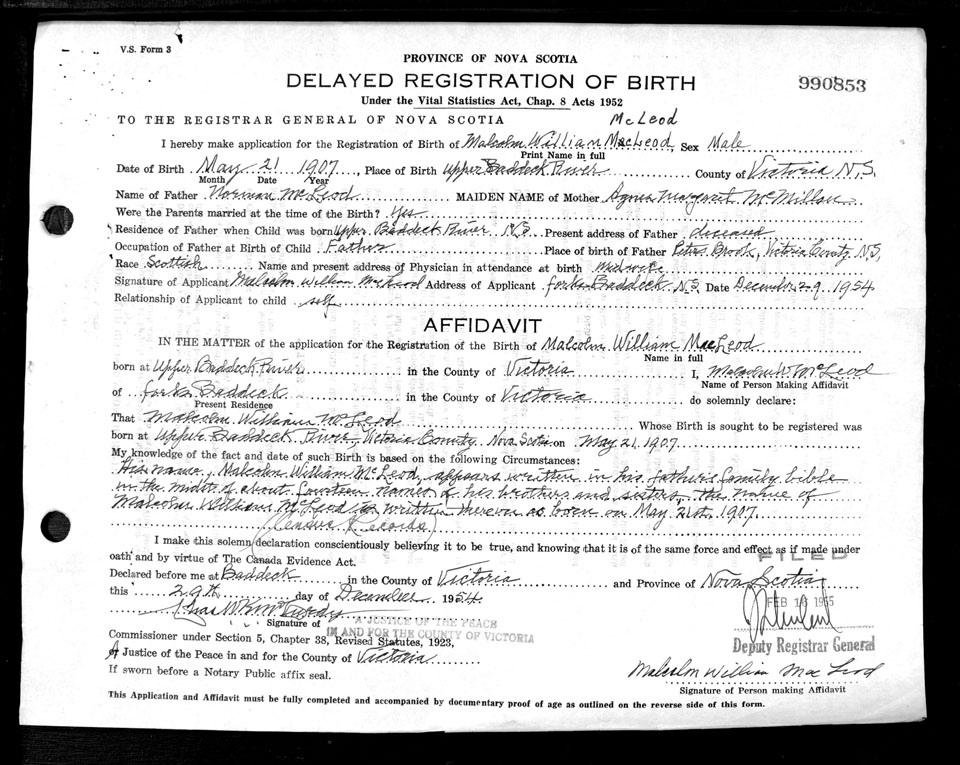 V.S. Form 3
PROVINCE OF NOVA SCOTIA
DELAYED REGISTRATION OF BIRTH
990853
Under the Vital Statistics Act, Chap. 8 Acts 1952
McLeod
TO THE REGISTRAR GENERAL OF NOVA SCOTIA
I hereby make application for the Registration of Birth of Malcolm William MacLeod, Sex Male
Print Name in full
Date of Birth May 21 1907, Place of Birth Upper Baddeck River County of Victoria N.S.
Month Date Year
Name of Father Norman McLeod MAIDEN NAME of Mother Agnes Margaret McMillan
Were the Parents married at the time of the Birth? Yes
Residence of Father when Child was born Upper Baddeck River N.S. Present address of Father deceased
Occupation of Father at Birth of Child Place of birth of Father Peters Brook, Victoria County N.S.
Race Scottish Name and present address of Physician in attendance at birth
Signature of Applicant Malcolm William McLeod Address of Applicant forks Baddeck N.S. Date December 29 1954
Relationship of Applicant to child self
AFFIDAVIT
IN THE MATTER of the application for the Registration of the Birth of Malcolm William MacLeod
Name in full
born at Upper Baddeck River in the County of Victoria I, Malcolm W McLeod
Name of Person Making Affidavit
of forks Baddeck in the County of Victoria do solemnly declare:
Present Residence
That Malcolm William McLeod Whose Birth is sought to be registered was
born at Upper Baddeck River, Victoria County Nova Scotia on May 21 1907
My knowledge of the fact and date of such Birth is based on the following Circumstances:
His name, Malcolm William McLeod, appears written in his father's family bible
in the midst of about fourteen names of his brothers and sisters, the name of
Malcolm William McLeod is written thereon as born on May 21st, 1907.
(Census Records)
I make this solemn declaration conscientiously believing it to be true, and knowing that it is of the same force and effect as if made under
oath and by virtue of The Canada Evidence Act.
FILED
Declared before me at Baddeck in the County of Victoria and Province of Nova Scotia
this 29th day of December 1954
FEB 16 1955
Signature of A JUSTICE OF THE PEACE
IN AND FOR THE COUNTY OF VICTORIA
Commissioner under Section 5, Chapter 38, Revised Statutes, 1923,
Deputy Registrar General
A Justice of the Peace in and for the County of Victoria
If sworn before a Notary Public affix seal.
Malcolm William MacLeod
Signature of Person making Affidavit
This Application and Affidavit must be fully completed and accompanied by documentary proof of age as outlined on the reverse side of this form.